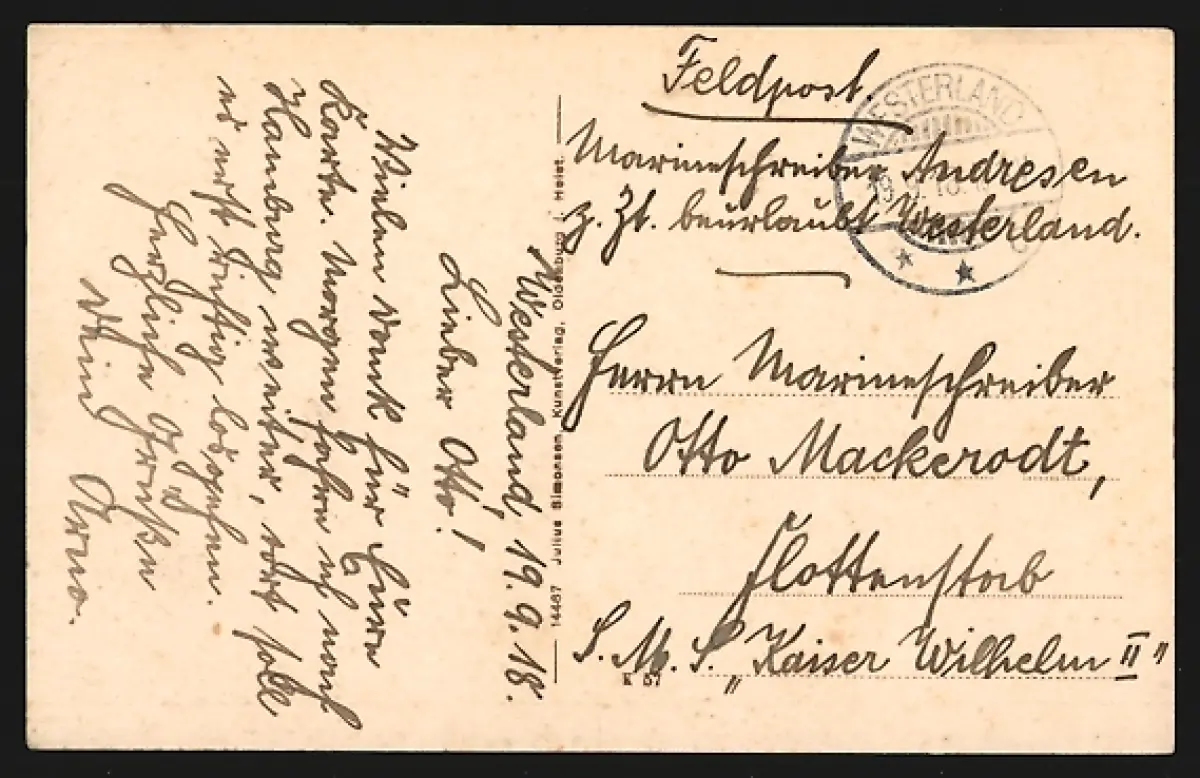 Feldpost.
Marineschreiber Andresen
z. Zt. beurlaubt Westerland.
WESTERLAND
19.9.18
Herrn Marineschreiber
Otto Mackerodt,
Flottenstab
S. M. S. „Kaiser Wilhelm II"
K 57
14467 Julius Simonsen, Kunstverlag, Oldenburg i. Holst.
Westerland, 19. 9. 18.
Lieber Otto!
Vielen Dank für Eure
Karte. Morgen fahre ich nach
Hamburg weiter, dort soll
es erst richtig losgehen.
Herzliche Grüße
Dein Arno.